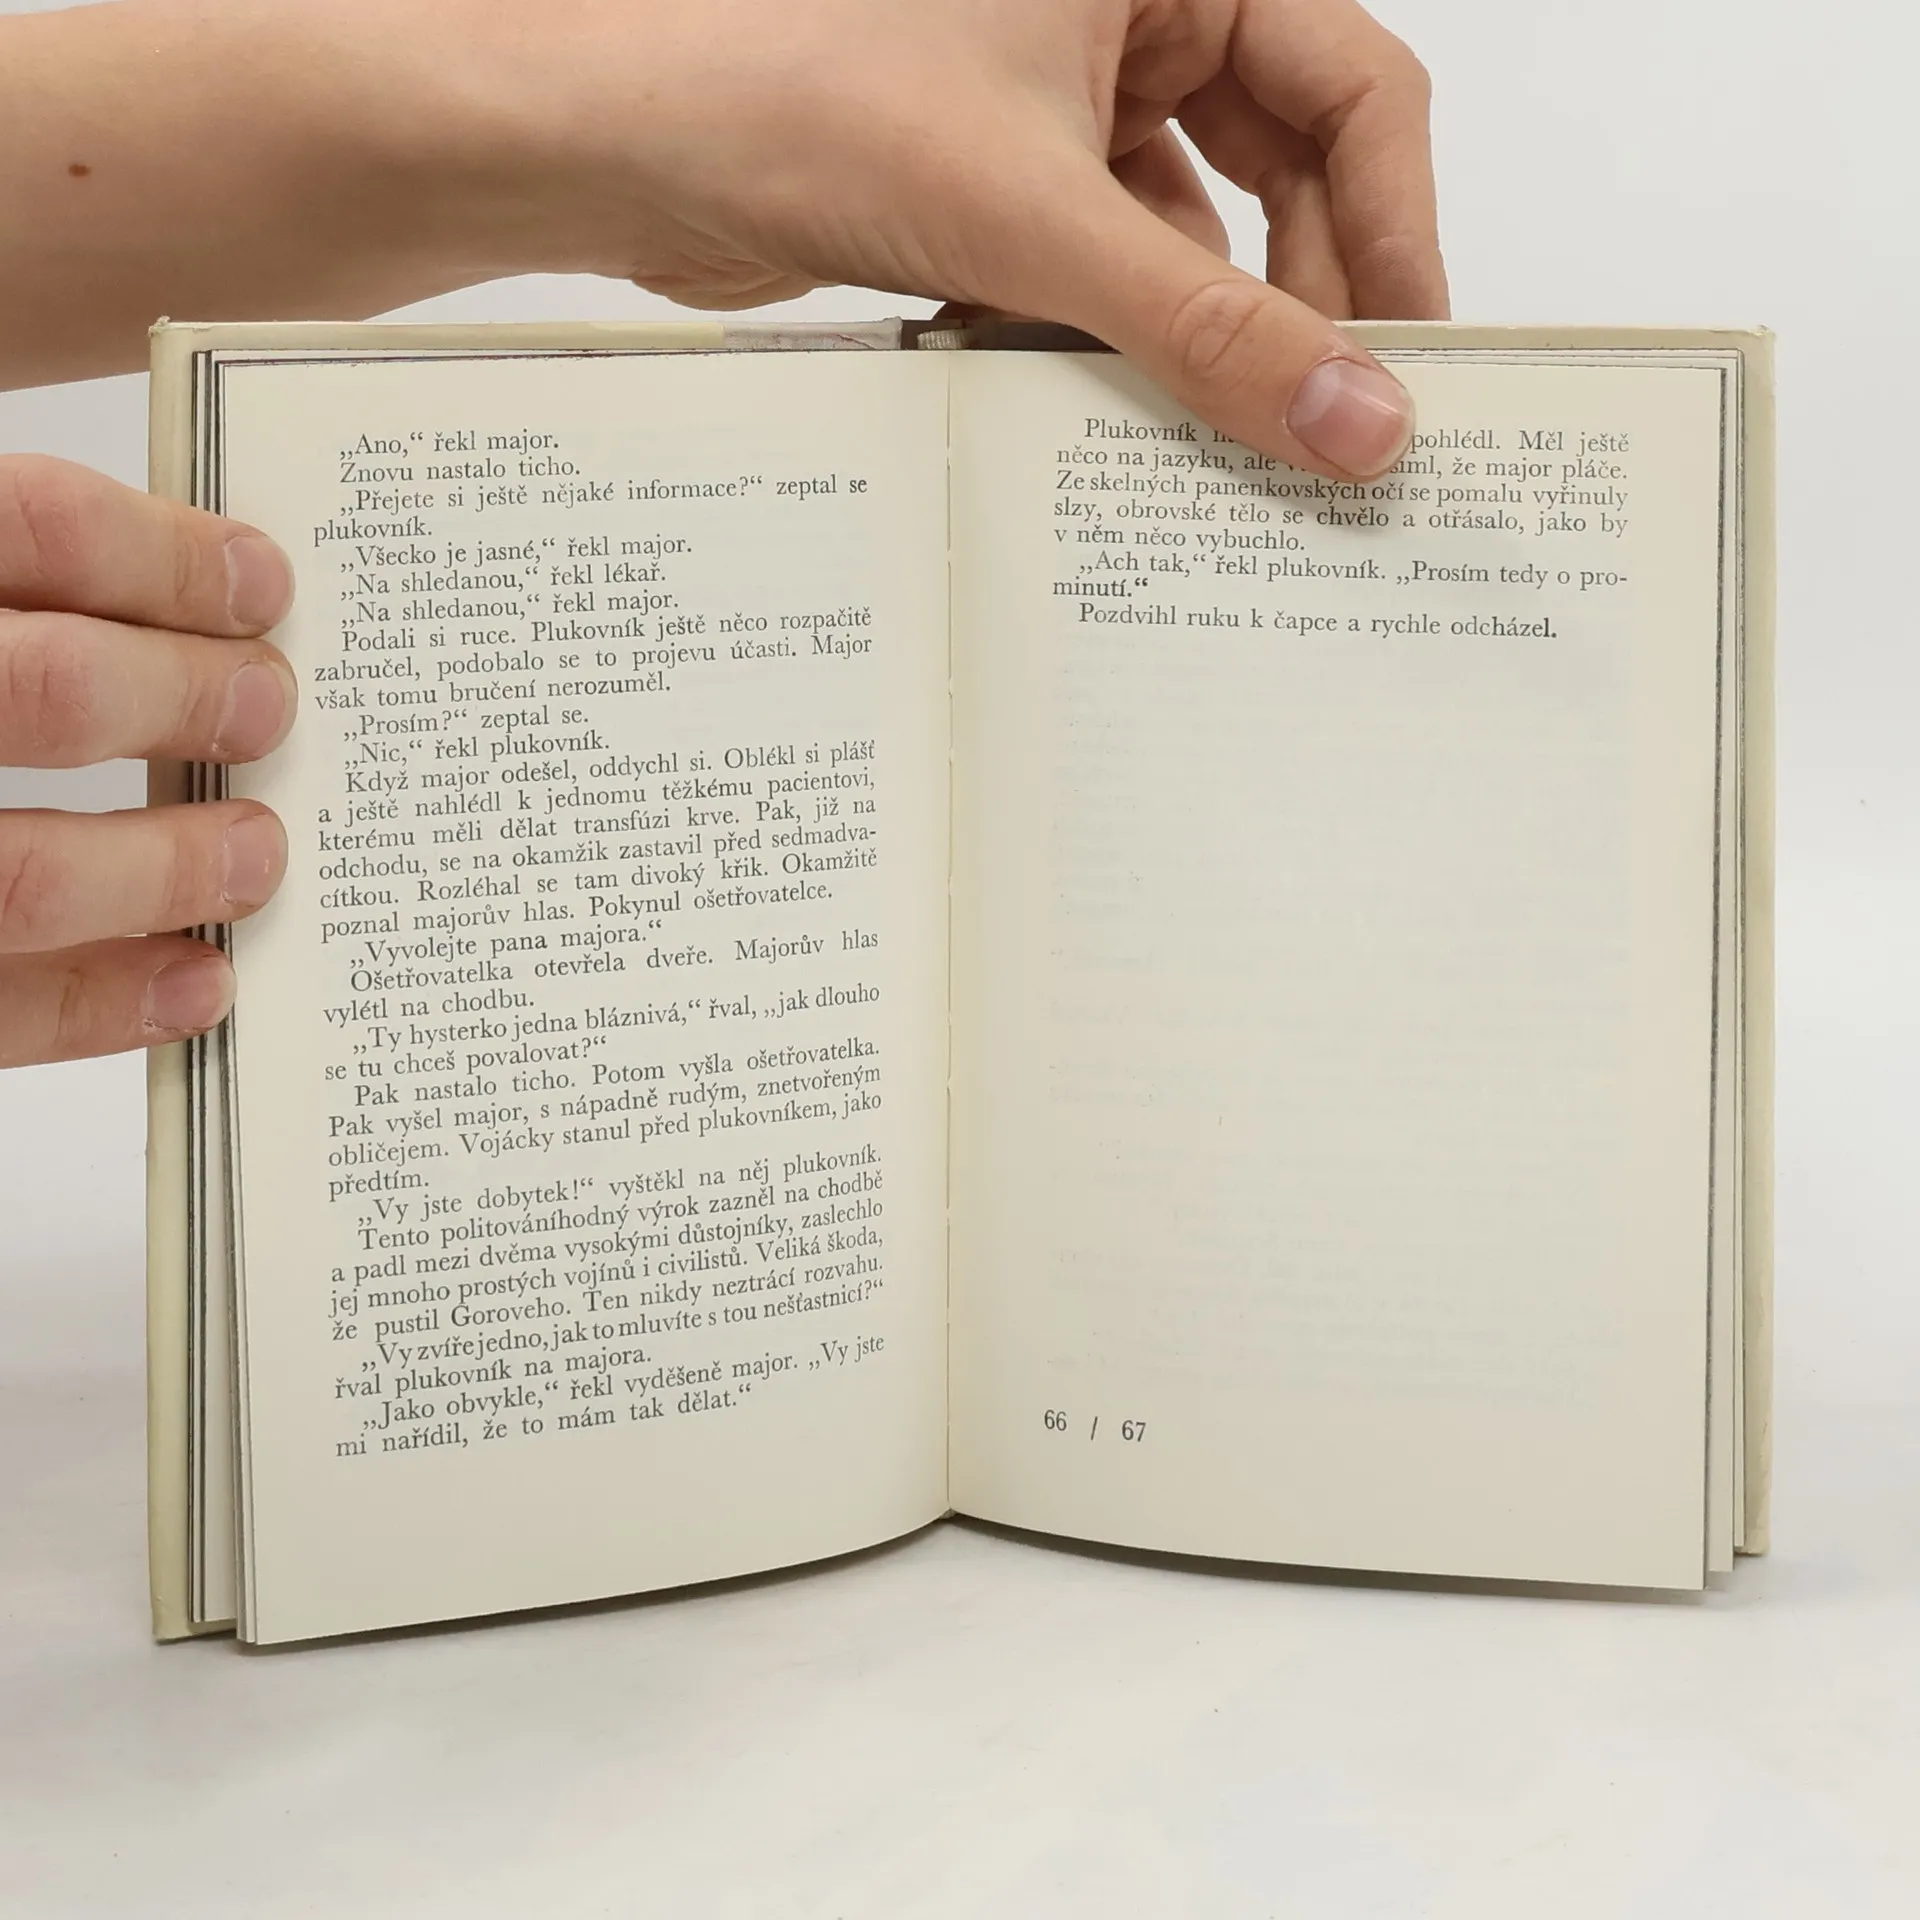 „Ano,“ řekl major.
Znovu nastalo ticho.
„Přejete si ještě nějaké informace?“ zeptal se
plukovník.
„Všecko je jasné,“ řekl major.
„Na shledanou,“ řekl lékař.
„Na shledanou,“ řekl major.
Podali si ruce. Plukovník ještě něco rozpačitě
zabručel, podobalo se to projevu účasti. Major
však tomu bručení nerozuměl.
„Prosím?“ zeptal se.
„Nic,“ řekl plukovník.
Když major odešel, oddychl si. Oblékl si plášť
a ještě nahlédl k jednomu těžkému pacientovi,
kterému měli dělat transfúzi krve. Pak, již na
odchodu, se na okamžik zastavil před sedmadva-
cítkou. Rozléhal se tam divoký křik. Okamžitě
poznal majorův hlas. Pokynul ošetřovatelce.
„Vyvolejte pana majora.“
Ošetřovatelka otevřela dveře. Majorův hlas
vylétl na chodbu.
„Ty hysterko jedna bláznivá,“ řval, „jak dlouho
se tu chceš povalovat?“
Pak nastalo ticho. Potom vyšla ošetřovatelka.
Pak vyšel major, s nápadně rudým, znetvořeným
obličejem. Vojácky stanul před plukovníkem, jako
předtím.
„Vy jste dobytek!“ vyštěkl na něj plukovník.
Tento politováníhodný výrok zazněl na chodbě
a padl mezi dvěma vysokými důstojníky, zaslechlo
jej mnoho prostých vojínů i civilistů. Veliká škoda,
že pustil Goroveho. Ten nikdy neztrácí rozvahu.
„Vy zvíře jedno, jak to mluvíte s tou nešťastnicí?“
řval plukovník na majora.
„Jako obvykle,“ řekl vyděšeně major. „Vy jste
mi nařídil, že to mám tak dělat.“
Plukovník pohlédl. Měl ještě
něco na jazyku, ale že major pláče.
Ze skelných panenkovských očí se pomalu vyřinuly
slzy, obrovské tělo se chvělo a otřásalo, jako by
v něm něco vybuchlo.
„Ach tak,“ řekl plukovník. „Prosím tedy o pro-
minutí.“
Pozdvihl ruku k čapce a rychle odcházel.
66 / 67